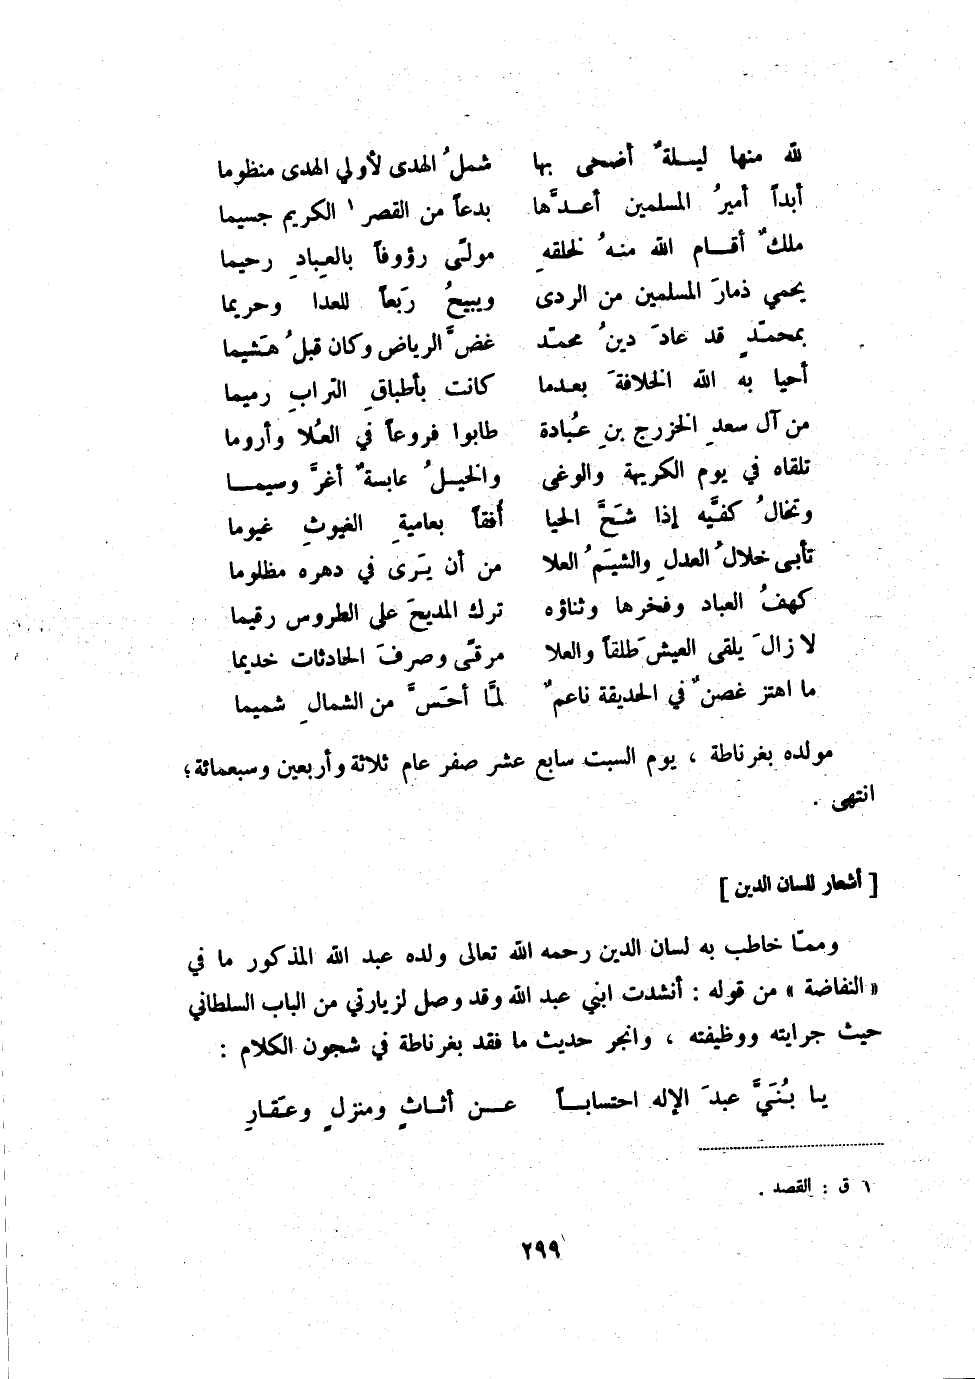 لله منها ليلةٌ أضحى بها شملُ الهدى لأولي الهدى منظوما
أبداً أميرُ المسلمين أعدَّها بدعاً من القصر ١ الكريم جسيما
ملكٌ أقام الله منهُ لخلقهِ مولىً رؤوفاً بالعبادِ رحيما
يحمي ذمارَ المسلمين من الردى ويبيحُ رَبعاً للعدا وحريما
بمحمّدٍ قد عادَ دينُ محمّد غضَّ الرياض وكان قبلُ هَشيما
أحيا به الله الخلافةَ بعدما كانت بأطباقِ الترابِ رميما
من آل سعدِ الخزرج بنِ عُبادة طابوا فروعاً في العُلا وأروما
تلقاه في يوم الكريهة والوغى والخيلُ عابسةٌ أغرَّ وسيما
وتخالُ كفَّيه إذا شَحَّ الحيا أُفقاً بعاميةِ الغيوثِ غيوما
تأبى خلالُ العدلِ والشيَمُ العلا من أن يَرى في دهره مظلوما
كهفُ العباد وفخرها وثناؤه ترك المديحَ على الطروس رقيما
لا زالَ يلقى العيشَ طلقاً والعلا مرقىً وصرفَ الحادثات خديما
ما اهتز غصنٌ في الحديقة ناعمٌ لمَّا أحَسَّ من الشمالِ شميما
مولده بغرناطة ، يوم السبت سابع عشر صفر عام ثلاثة وأربعين وسبعمائة؛
انتهى .
[ أشعار للسان الدين ]
وممّا خاطب به لسان الدين رحمه الله تعالى ولده عبد الله المذكور ما في
« النفاضة » من قوله : أنشدت ابني عبد الله وقد وصل لزيارتي من الباب السلطاني
حيث جرايته ووظيفته ، وانجر حديث ما فقد بغرناطة في شجون الكلام :
يا بُنَيَّ عبدَ الإله احتساباً عن أثاثٍ ومنزلٍ وعَقارِ
١ ق : القصد .
٢٩٩